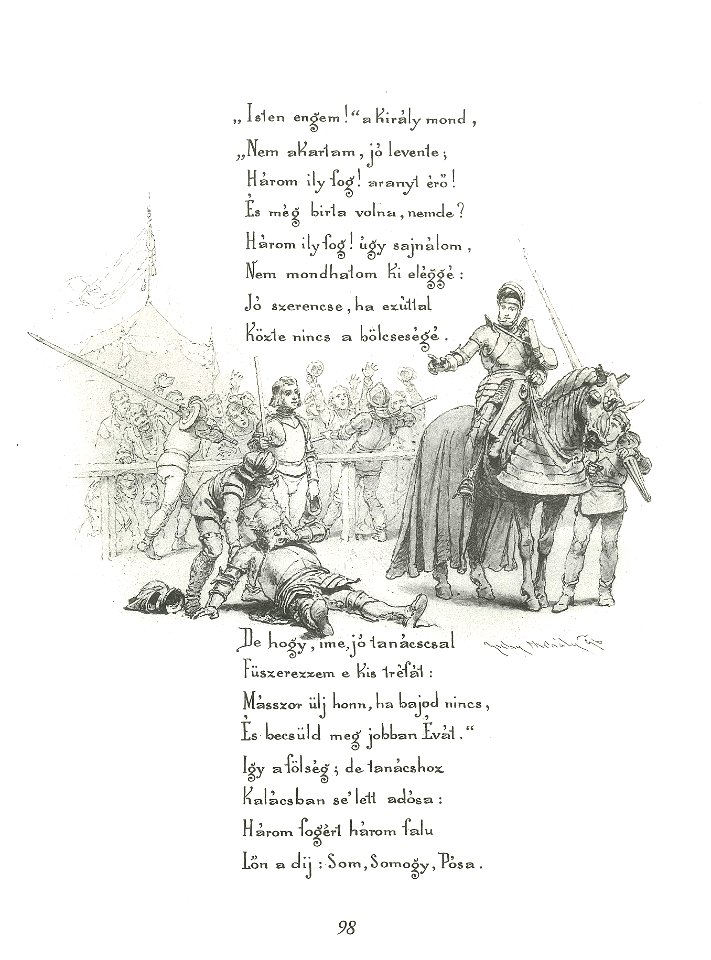 „Isten engem!“ a király mond,
„Nem akartam, jó levente;
Három ily fog! aranyt érő!
És még birta volna, nemde?
Három ily fog! úgy sajnálom,
Nem mondhatom ki eléggé:
Jó szerencse, ha ezúttal
Közte nincs a bölcseségé.
De hogy, ime, jó tanácscsal
Füszerezzem e kis tréfát:
Másszor ülj honn, ha bajod nincs,
És becsüld meg jobban Évát.“
Igy a fölség; de tanácshoz
Kalácsban se' lett adósa:
Három fogért három falu
Lőn a dij: Som, Somogy, Pósa.
98